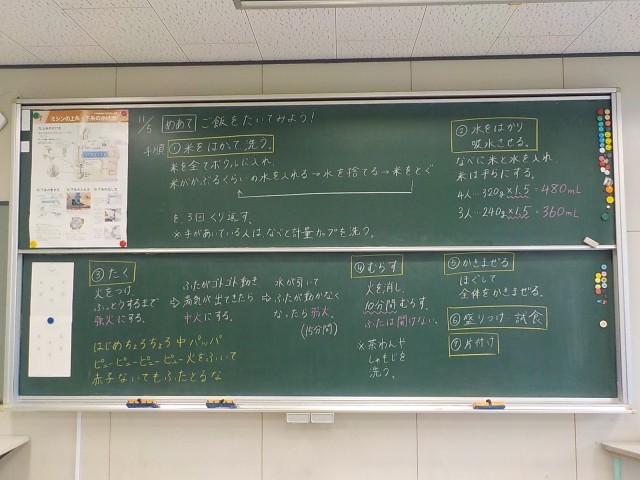 ミシンの上糸・下糸のかけ方
11/5 めあて ご飯をたいてみよう!
手順 ①米をはかって、洗う。
米を全てボウルに入れ、
米がかぶるくらいの水を入れる→水を捨てる→米をとぐ
を3回くり返す。
※手があいている人は、なべと計量カップを洗う。
②水をはかり
吸水させる。
なべに米と水を入れ
米は平らにする。
4人…320g×1.5=480mL
3人…240g×1.5=360mL
③たく
火をつけ
ふっとうするまで
強火にする。
ふたがゴトゴト動き
⇨蒸気が出てきたら
中火にする。
水が引いて
⇨ふたが動かなく
なったら弱火。
(15分間)
はじめちょろちょろ中パッパ
ピューピューピューピュー火をふいて
赤子ないてもふたとるな
④むらす
火を消し、
10分間むらす。
ふたは開けない。
※茶わんや
しゃもじを
洗う。
⑤かきまぜる
ほぐして
全体をかきまぜる。
⑥盛りつけ・試食
⑦片付け